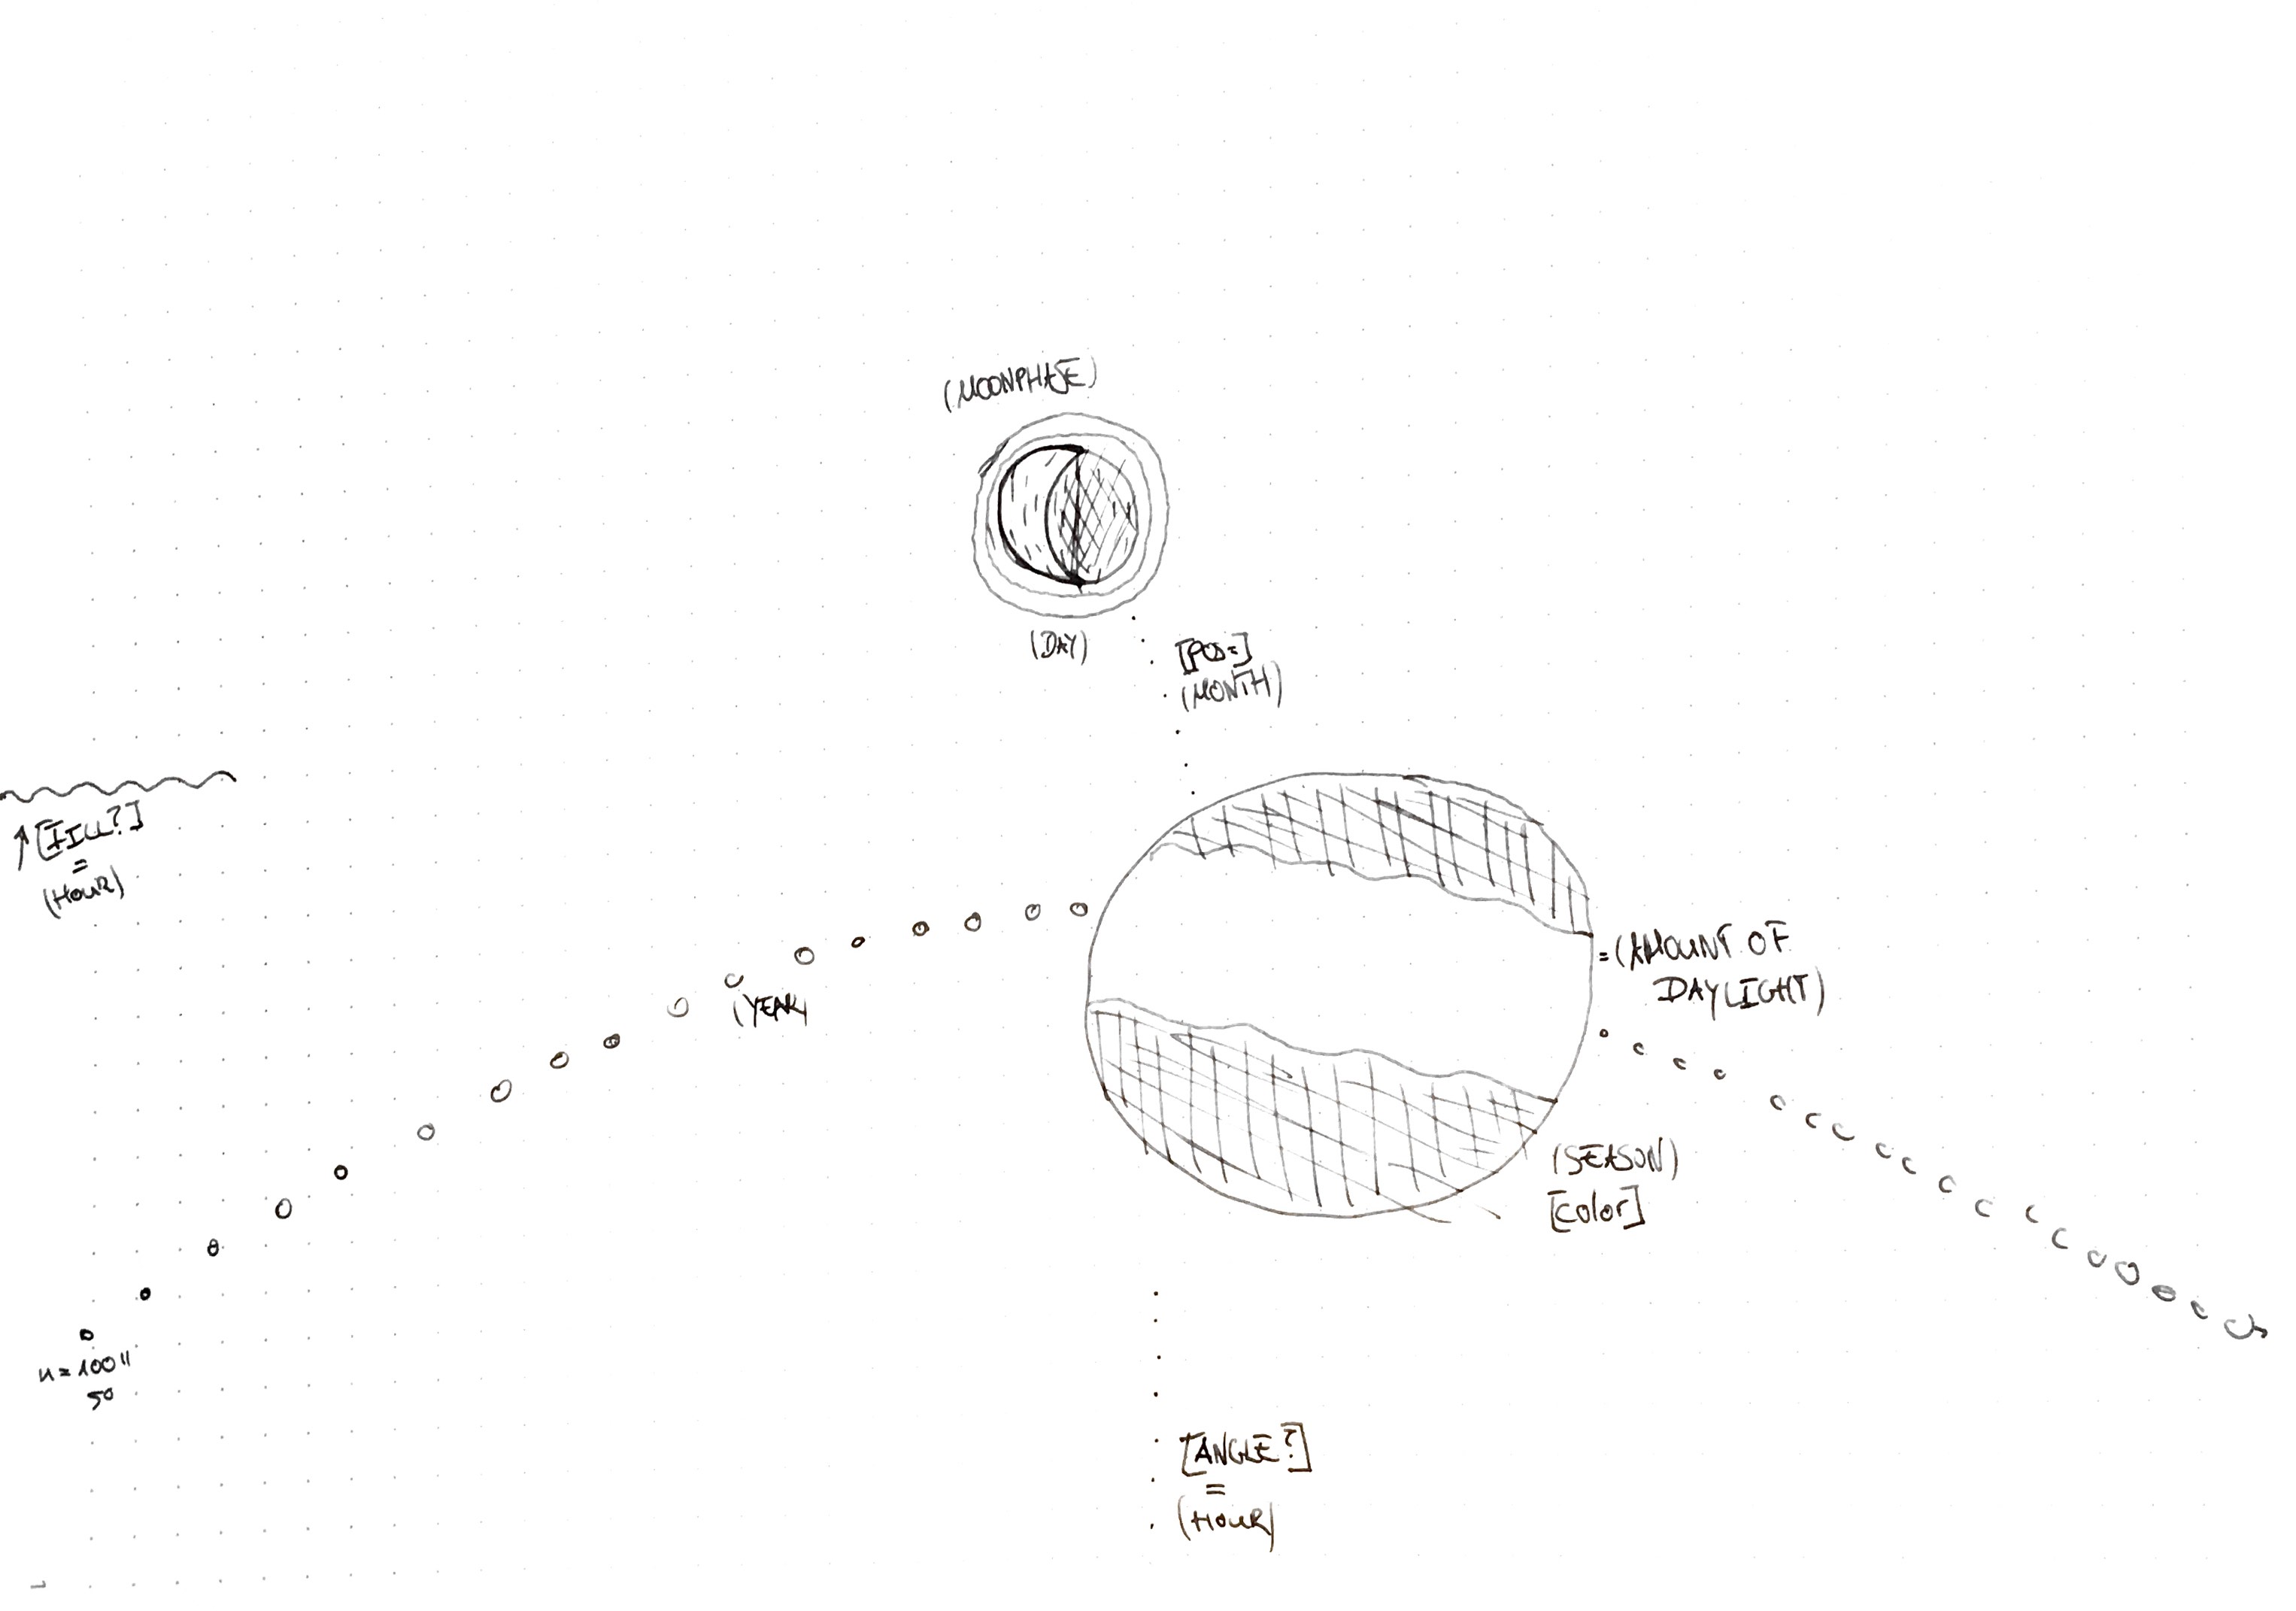 (MOONPHASE)
(DAY)
[POS=]
(MONTH)
[FILL?]
=
(HOUR)
(YEAR)
=(AMOUNT OF
DAYLIGHT)
(SEASON)
[color]
n=100"
50
[ANGLE?]
=
(HOUR)